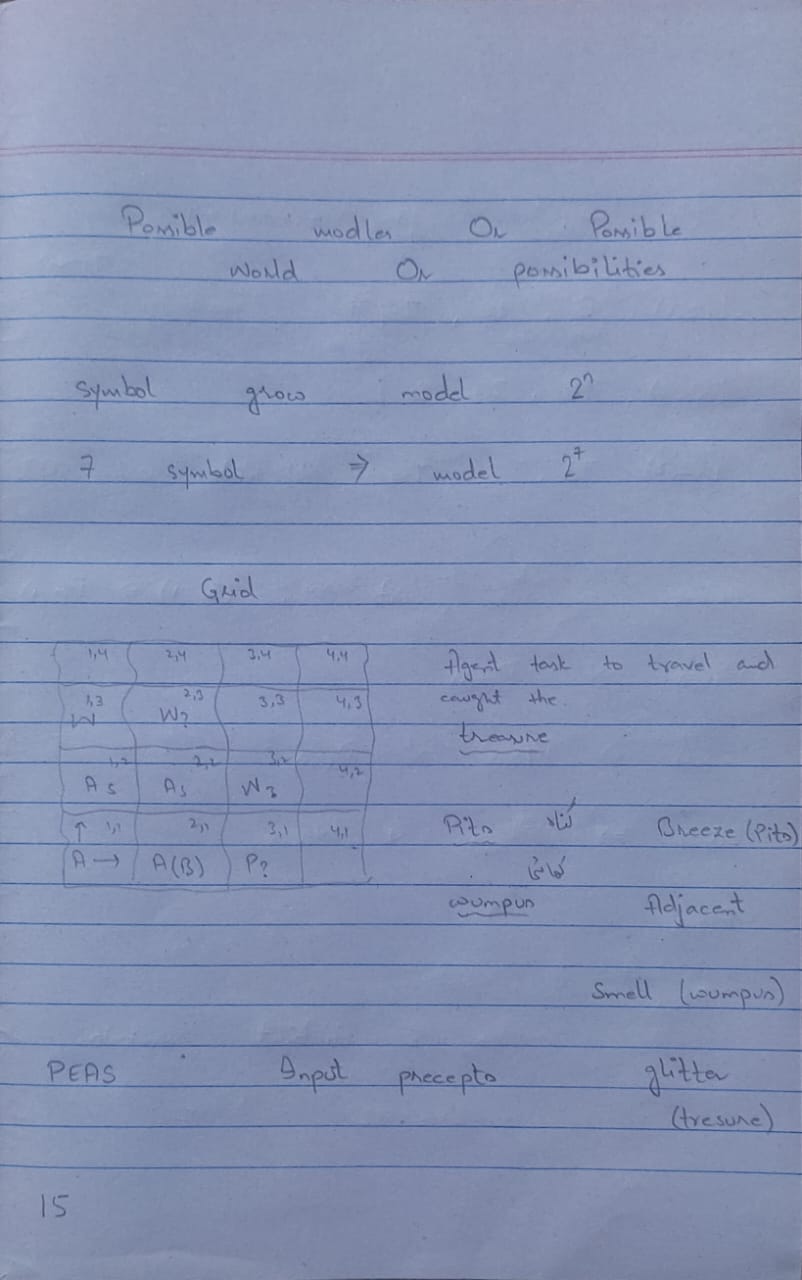 Possible modles Or Possible
World Or possibilities
Symbol grow model 2ⁿ
7 symbol ⇒ model 2⁷
Grid
1,4 2,4 3,4 4,4
1,3 2,3 3,3 4,3
W W?
1,2 2,2 3,2 4,2
As As W?
↑ 1,1 2,1 3,1 4,1
A → A(B) P?
Agent task to travel and
caught the
treasure
Pits Breeze (Pits)
wumpus Adjacent
Smell (wumpus)
PEAS Input precepts glitter
(tresure)
15